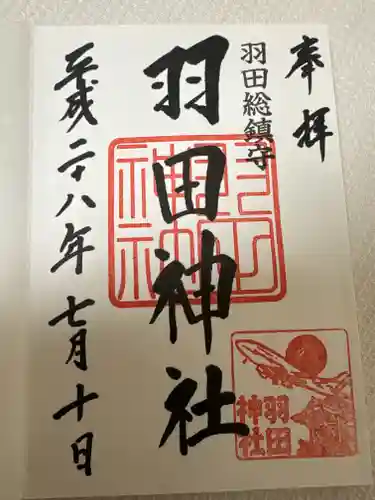 奉拝
羽田総鎮守
羽田神社
平成二十八年七月十日
羽田
神社